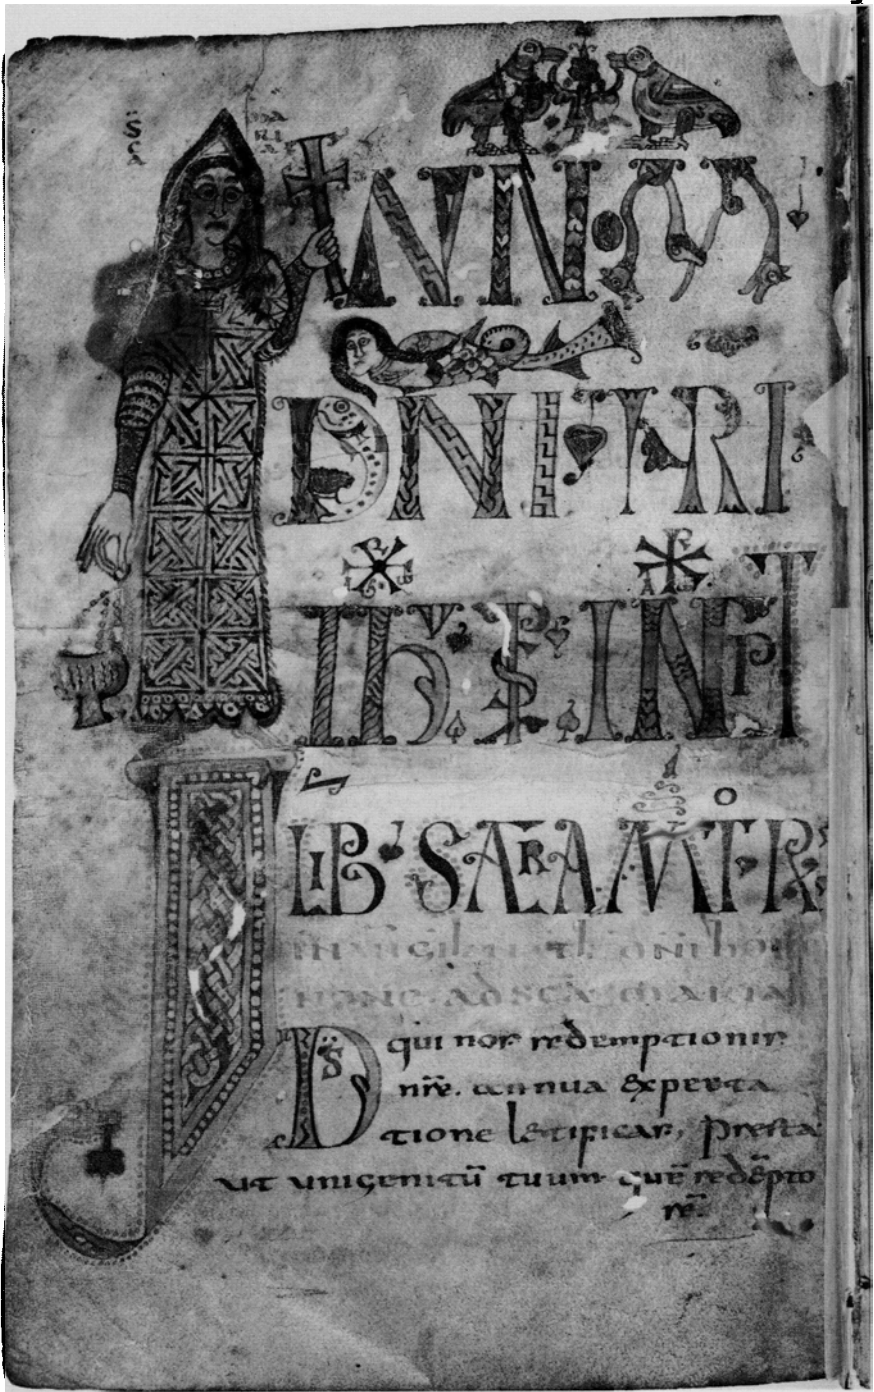 SCA MARIA
NN·OM
DNI·NTRI
IHV· INCPT
LIB· SACRAMTOR
IN VIGIL NATL DNI HO
NONE· AD SCA MARIA
DS qui nos redemptionis
nr̄e. annua expecta
tione letificas, presta
ut unigenitū tuum quē redēpto
rē.